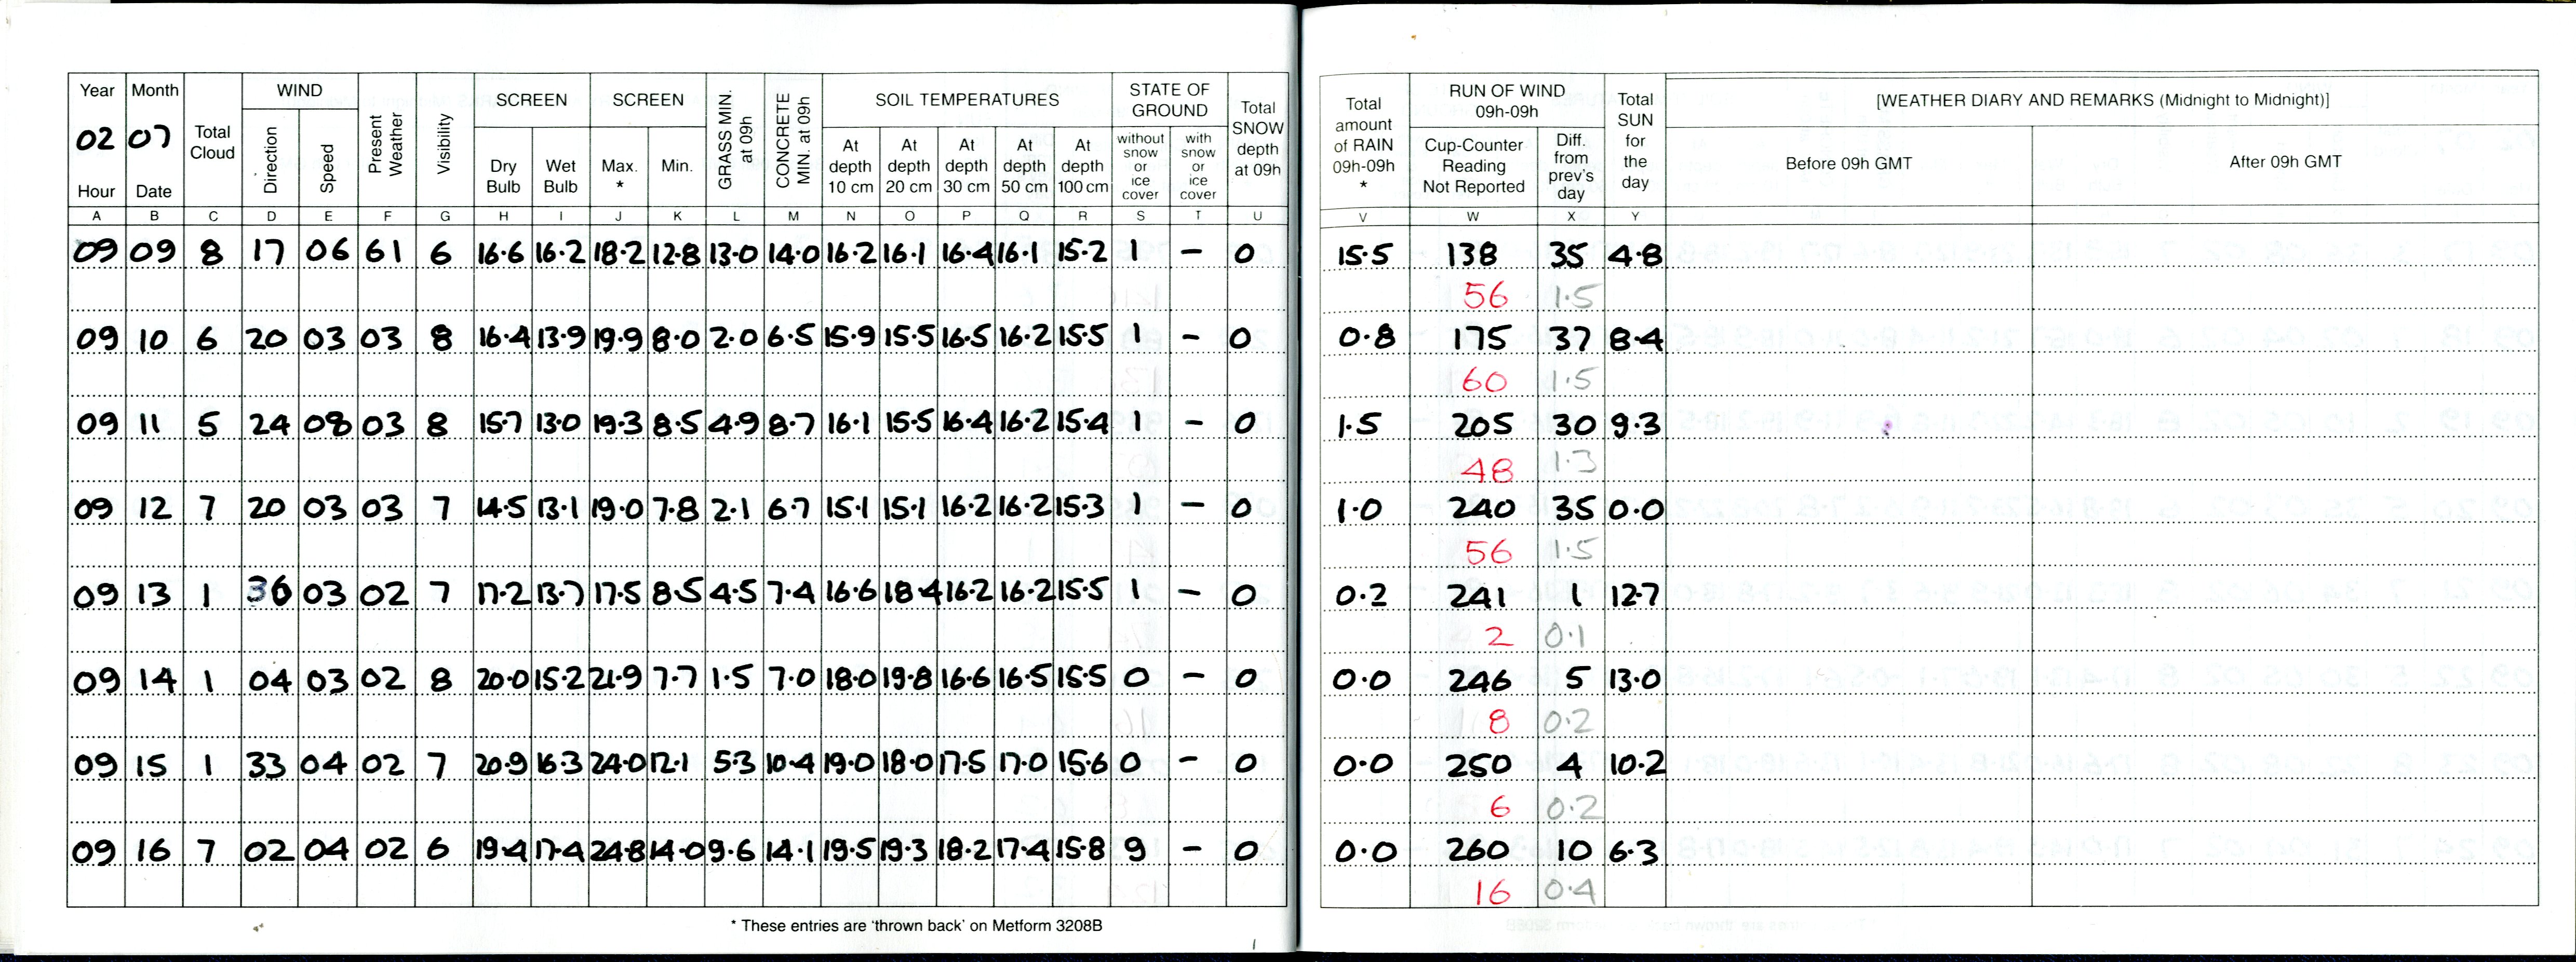 Year Month Total Cloud WIND Present Weather Visibility SCREEN SCREEN GRASS MIN. at 09h CONCRETE MIN. at 09h SOIL TEMPERATURES STATE OF GROUND Total SNOW depth at 09h
02 07 Direction Speed Dry Bulb Wet Bulb Max. * Min. At depth 10 cm At depth 20 cm At depth 30 cm At depth 50 cm At depth 100 cm without snow or ice cover with snow or ice cover
Hour Date
A B C D E F G H I J K L M N O P Q R S T U
09 09 8 17 06 61 6 16.6 16.2 18.2 12.8 13.0 14.0 16.2 16.1 16.4 16.1 15.2 1 – 0
09 10 6 20 03 03 8 16.4 13.9 19.9 8.0 2.0 6.5 15.9 15.5 16.5 16.2 15.5 1 – 0
09 11 5 24 08 03 8 15.7 13.0 19.3 8.5 4.9 8.7 16.1 15.5 16.4 16.2 15.4 1 – 0
09 12 7 20 03 03 7 14.5 13.1 19.0 7.8 2.1 6.7 15.1 15.1 16.2 16.2 15.3 1 – 0
09 13 1 36 03 02 7 17.2 13.7 17.5 8.5 4.5 7.4 16.6 18.4 16.2 16.2 15.5 1 – 0
09 14 1 04 03 02 8 20.0 15.2 21.9 7.7 1.5 7.0 18.0 19.8 16.6 16.5 15.5 0 – 0
09 15 1 33 04 02 7 20.9 16.3 24.0 12.1 5.3 10.4 19.0 18.0 17.5 17.0 15.6 0 – 0
09 16 7 02 04 02 6 19.4 17.4 24.8 14.0 9.6 14.1 19.5 19.3 18.2 17.4 15.8 9 – 0
* These entries are 'thrown back' on Metform 3208B
Total amount of RAIN 09h-09h * RUN OF WIND 09h-09h Total SUN for the day [WEATHER DIARY AND REMARKS (Midnight to Midnight)]
Cup-Counter Reading Not Reported Diff. from prev's day Before 09h GMT After 09h GMT
V W X Y
15.5 138 35 4.8
56 1.5
0.8 175 37 8.4
60 1.5
1.5 205 30 9.3
48 1.3
1.0 240 35 0.0
56 1.5
0.2 241 1 12.7
2 0.1
0.0 246 5 13.0
8 0.2
0.0 250 4 10.2
6 0.2
0.0 260 10 6.3
16 0.4